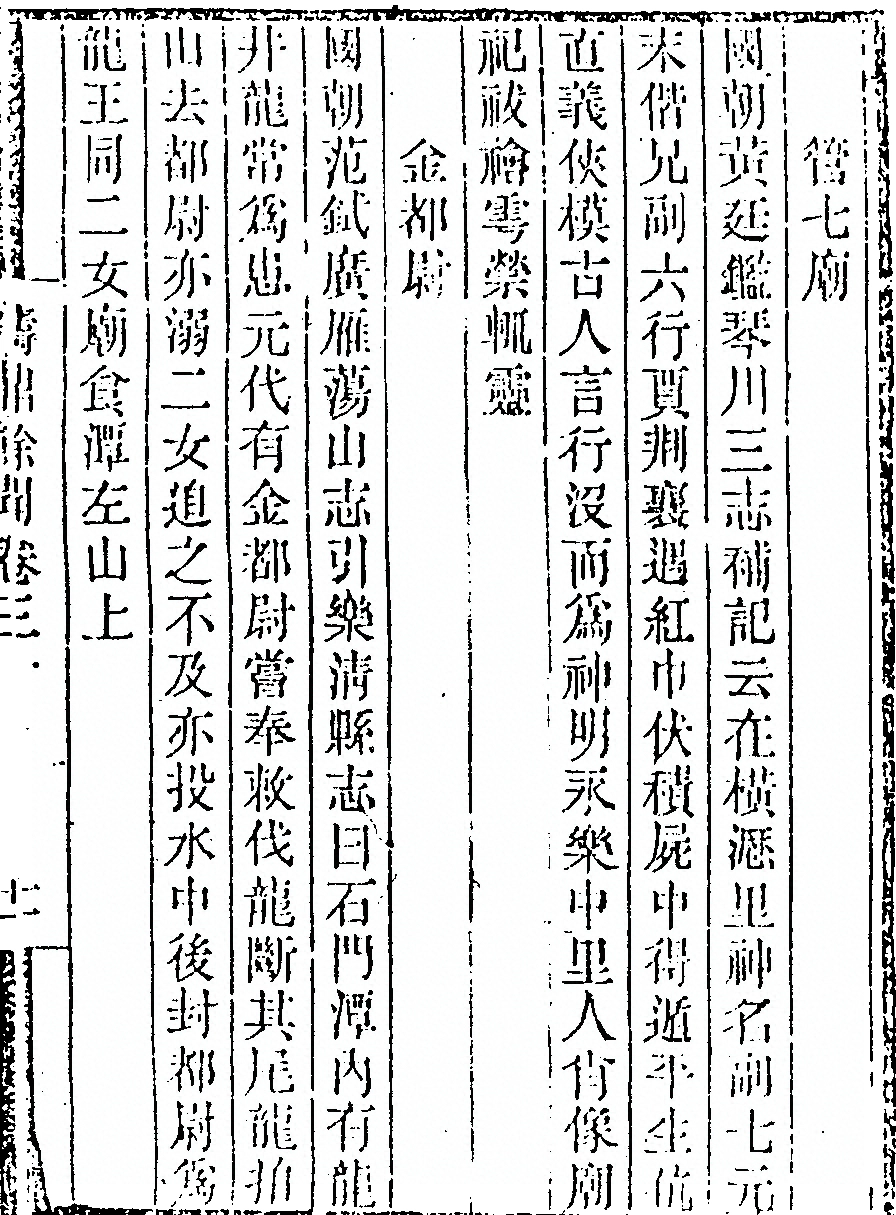 管七廟
國朝黃廷鑑琴川三志補記云在橫瀝里神名副七元
末偕兄副六行賈荆襄遇紅巾伏積屍中得遁平生伉
直義俠模古人言行沒而為神明永樂中里人肖像廟
祀祓禬雩禜輒靈
金都尉
國朝范鋱廣雁蕩山志引樂清縣志曰石門潭內有龍
井龍常為患元代有金都尉嘗奉敕伐龍斷其尾龍拍
山去都尉亦溺二女追之不及亦投水中後封都尉為
龍王同二女廟食潭左山上
鑄鼎餘聞卷三